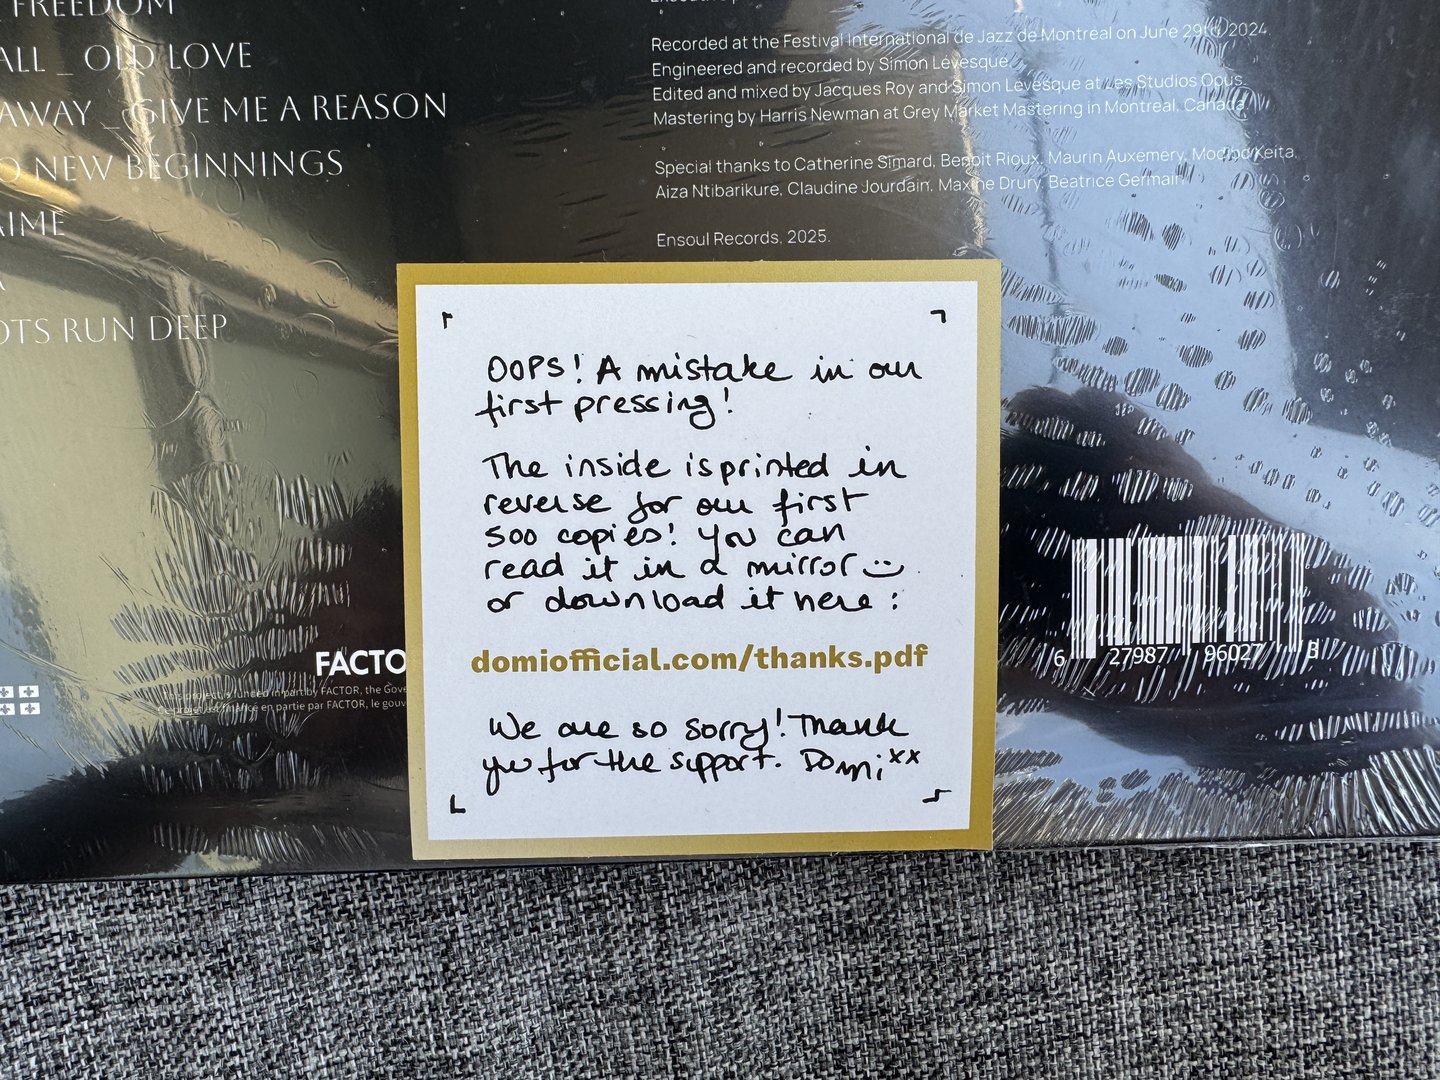 FREEDOM
ALL _ OLD LOVE
AWAY _ GIVE ME A REASON
O NEW BEGINNINGS
AIME
OTS RUN DEEP
Recorded at the Festival International de Jazz de Montreal on June 29th, 2024.
Engineered and recorded by Simon Lévesque.
Edited and mixed by Jacques Roy and Simon Lévesque at Les Studios Opus.
Mastering by Harris Newman at Grey Market Mastering in Montreal, Canada.
Special thanks to Catherine Simard, Benoit Rioux, Maurin Auxéméry, Modibo Keita,
Aïza Ntibarikure, Claudine Jourdain, Maxine Drury, Béatrice Germain.
Ensoul Records, 2025.
OOPS! A mistake in our
first pressing!
The inside is printed in
reverse for our first
500 copies! You can
read it in a mirror :)
or download it here :
domiofficial.com/thanks.pdf
We are so sorry! Thank
you for the support. Domi xx
FACTO
This project is funded in part by FACTOR, the Gove
Ce projet est financé en partie par FACTOR, le gouv
6 27987 96027 3